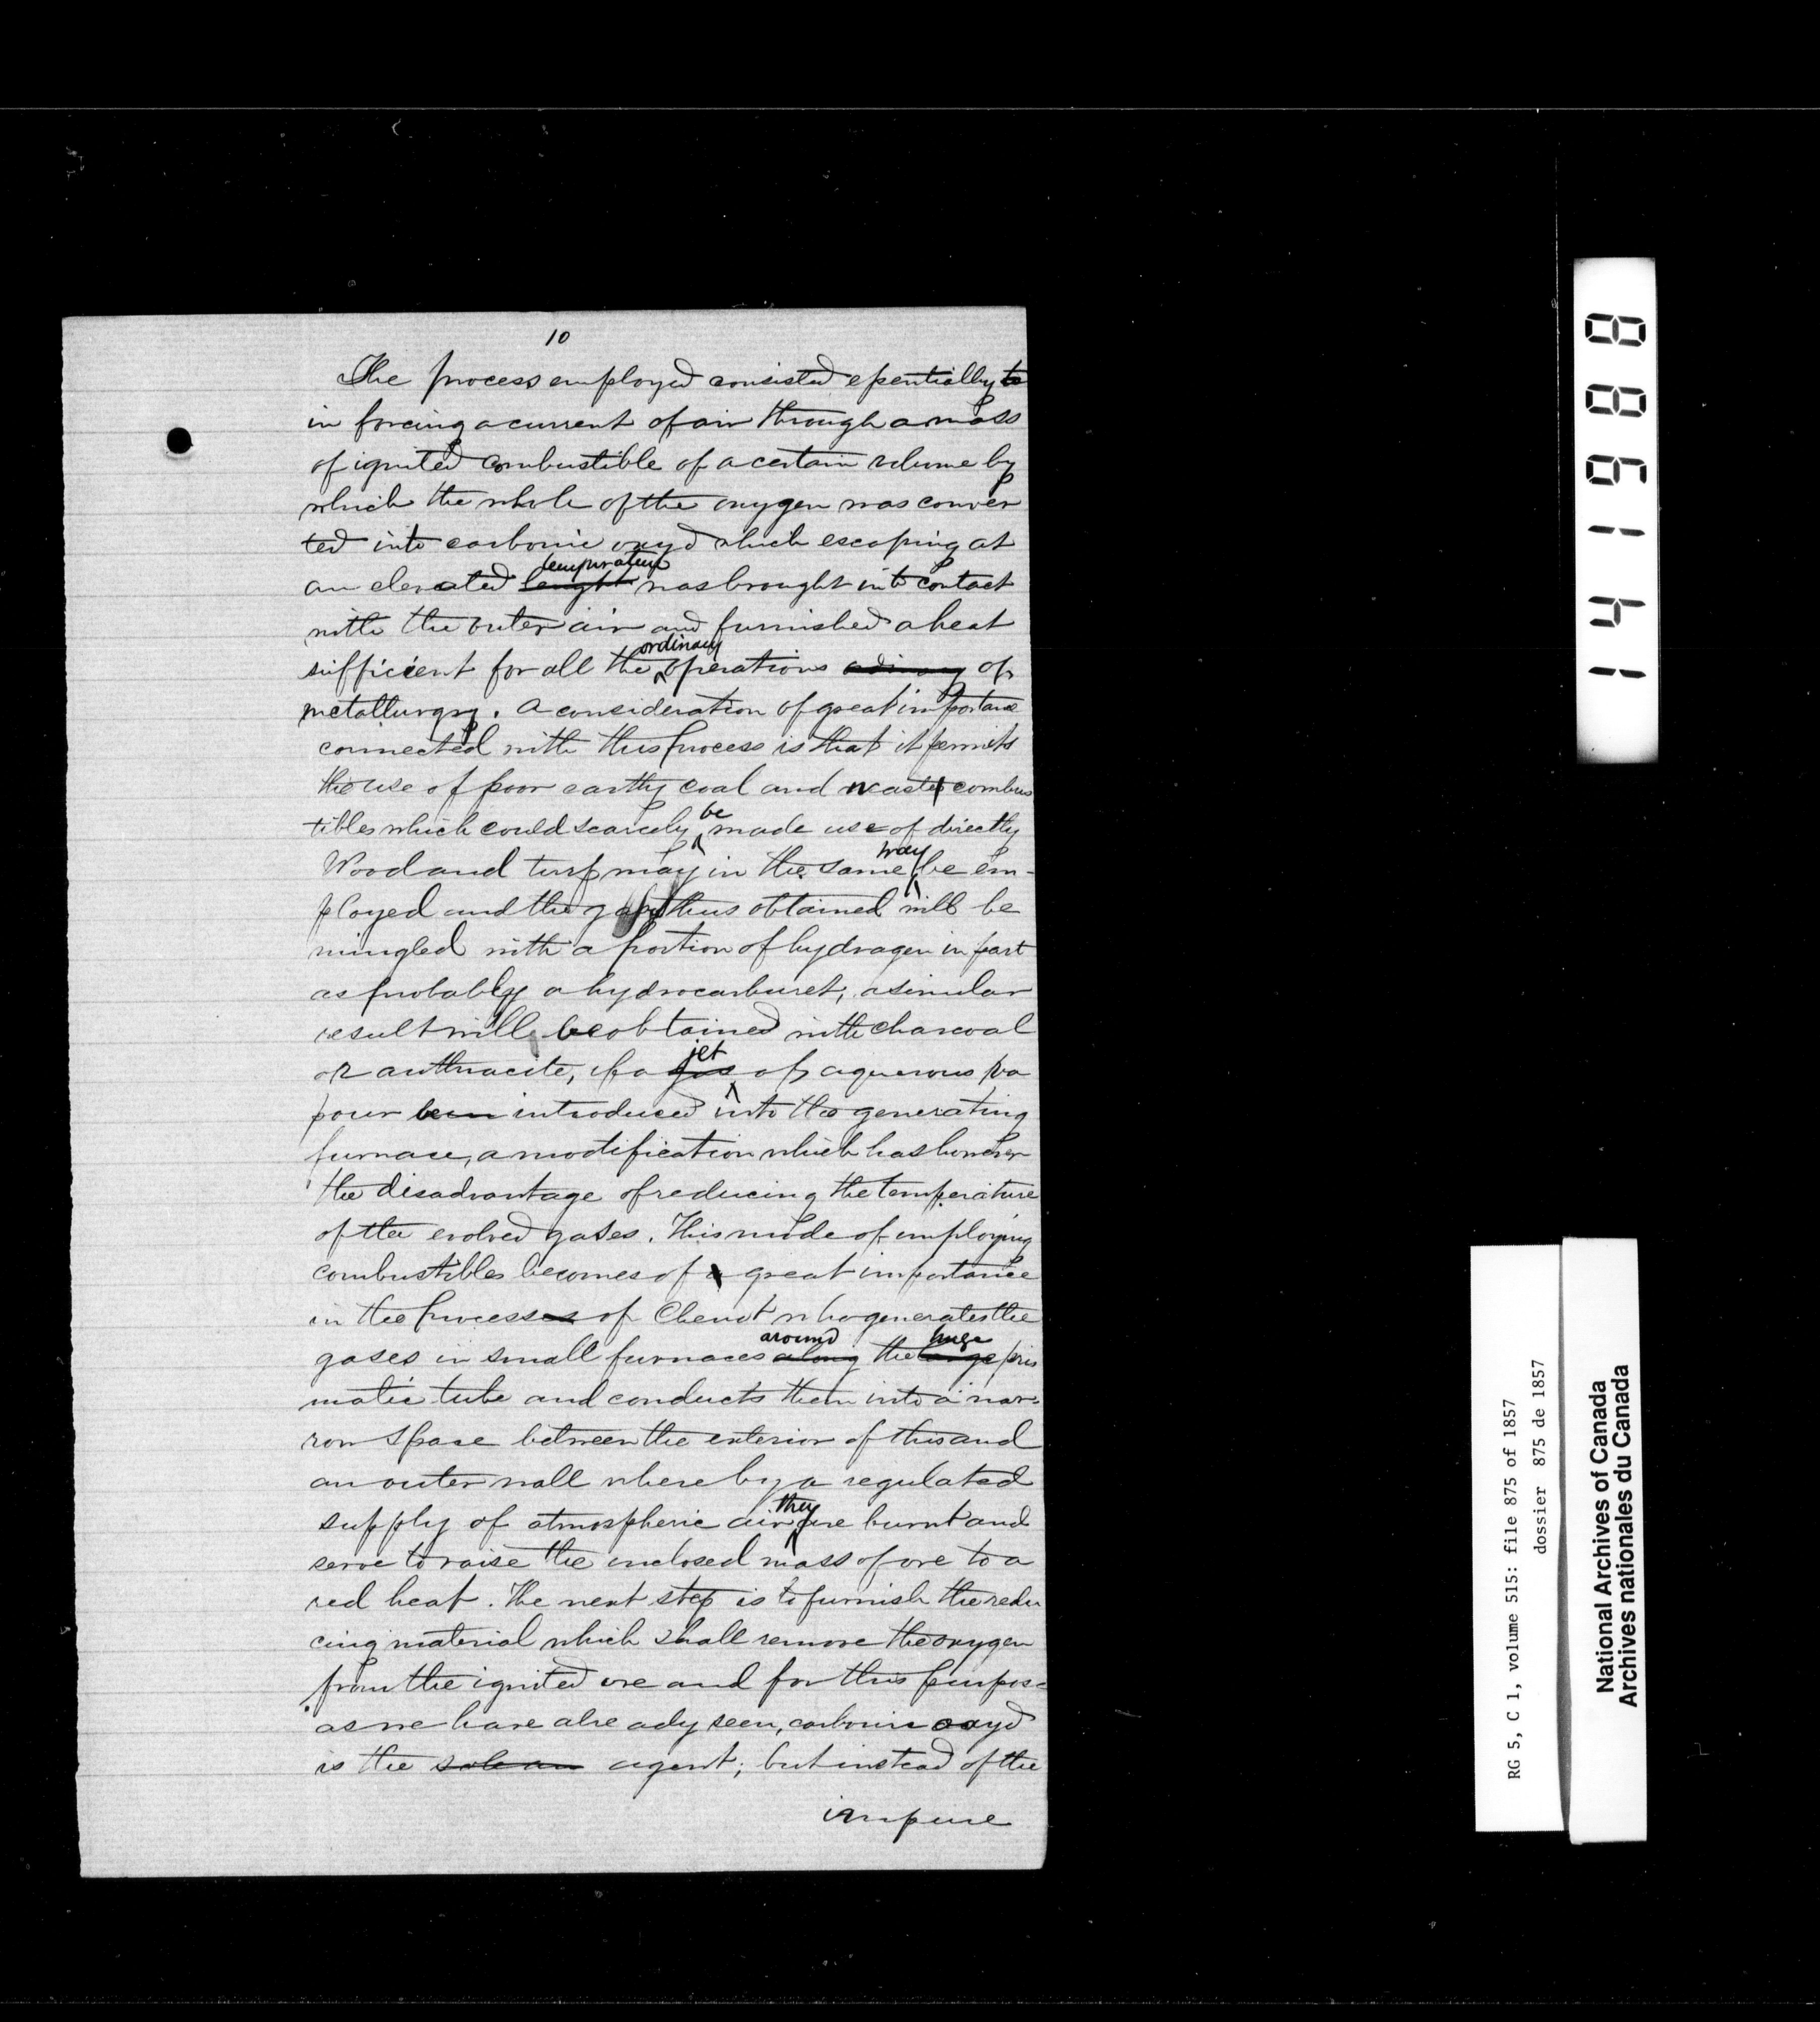 10
The process employed consisted essentially to
in forcing a current of air through a mass
of ignited combustible of a certain volume by
which the whole of the oxygen was conver
ted into carbonic oxyd which escaping at
temperature
an elevated lenght was brought into contact
with the outer air and furnished a heat
ordinary
sufficient for all the operations of
metallurgy. A consideration of great importance
connected with this process is that it permits
the use of poor earthy coal and waste combus
be
tibles which could scarcely made use of directly
way
Wood and turf may in the same be em-
ployed and the gas thus obtained will be
mingled with a portion of hydrogen in part
as probably a hydrocarburet, a similar
result will be obtained with charcoal
jet
or anthracite, if a gas of aquerous va
pour been introduced into the generating
furnace, a modification which has however
the disadvantage of reducing the temperature
of the evolved gases. This mode of employing
combustibles becomes of a great importance
in the processes of Chenot who generates the
around huge
gases in small furnaces along the large pris
matic tube and conducts them into a nar-
row space between the exterior of this and
an outer wall where by a regulated
they
supply of atmospheric air are burnt and
serve to raise the inclosed mass of ore to a
red heat. The next step is to furnish the redu
cing material which shall remove the oxygen
from the ignited ore and for this purpose
as we have already seen, carbonic oxyd
is the sole an agent; but instead of the
impure
1419888
RG 5, C 1, volume 515: file 875 of 1857
dossier 875 de 1857
National Archives of Canada
Archives nationales du Canada